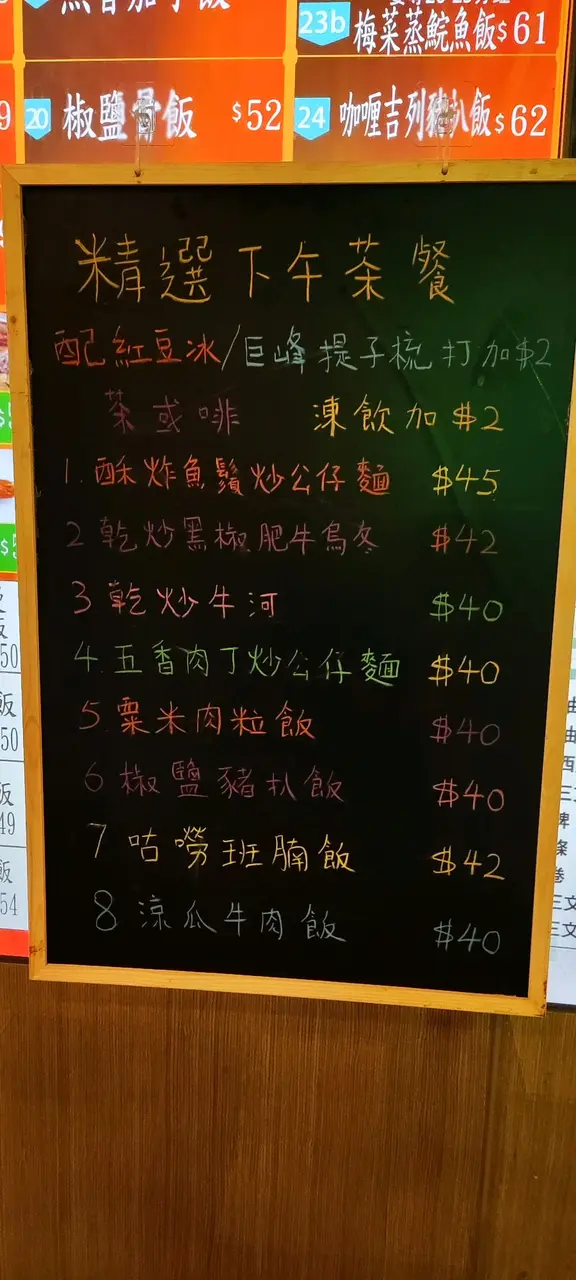 23b 梅菜蒸鯇魚飯$61
20 椒鹽骨飯 $52
24 咖喱吉列豬扒飯$62
精選下午茶餐
配紅豆冰/巨峰提子梳打加$2
茶或啡 凍飲加$2
1. 酥炸魚鬚炒公仔麵 $45
2 乾炒黑椒肥牛烏冬 $42
3 乾炒牛河 $40
4. 五香肉丁炒公仔麵 $40
5 粟米肉粒飯 $40
6 椒鹽豬扒飯 $40
7 咕嘮班腩飯 $42
8 涼瓜牛肉飯 $40